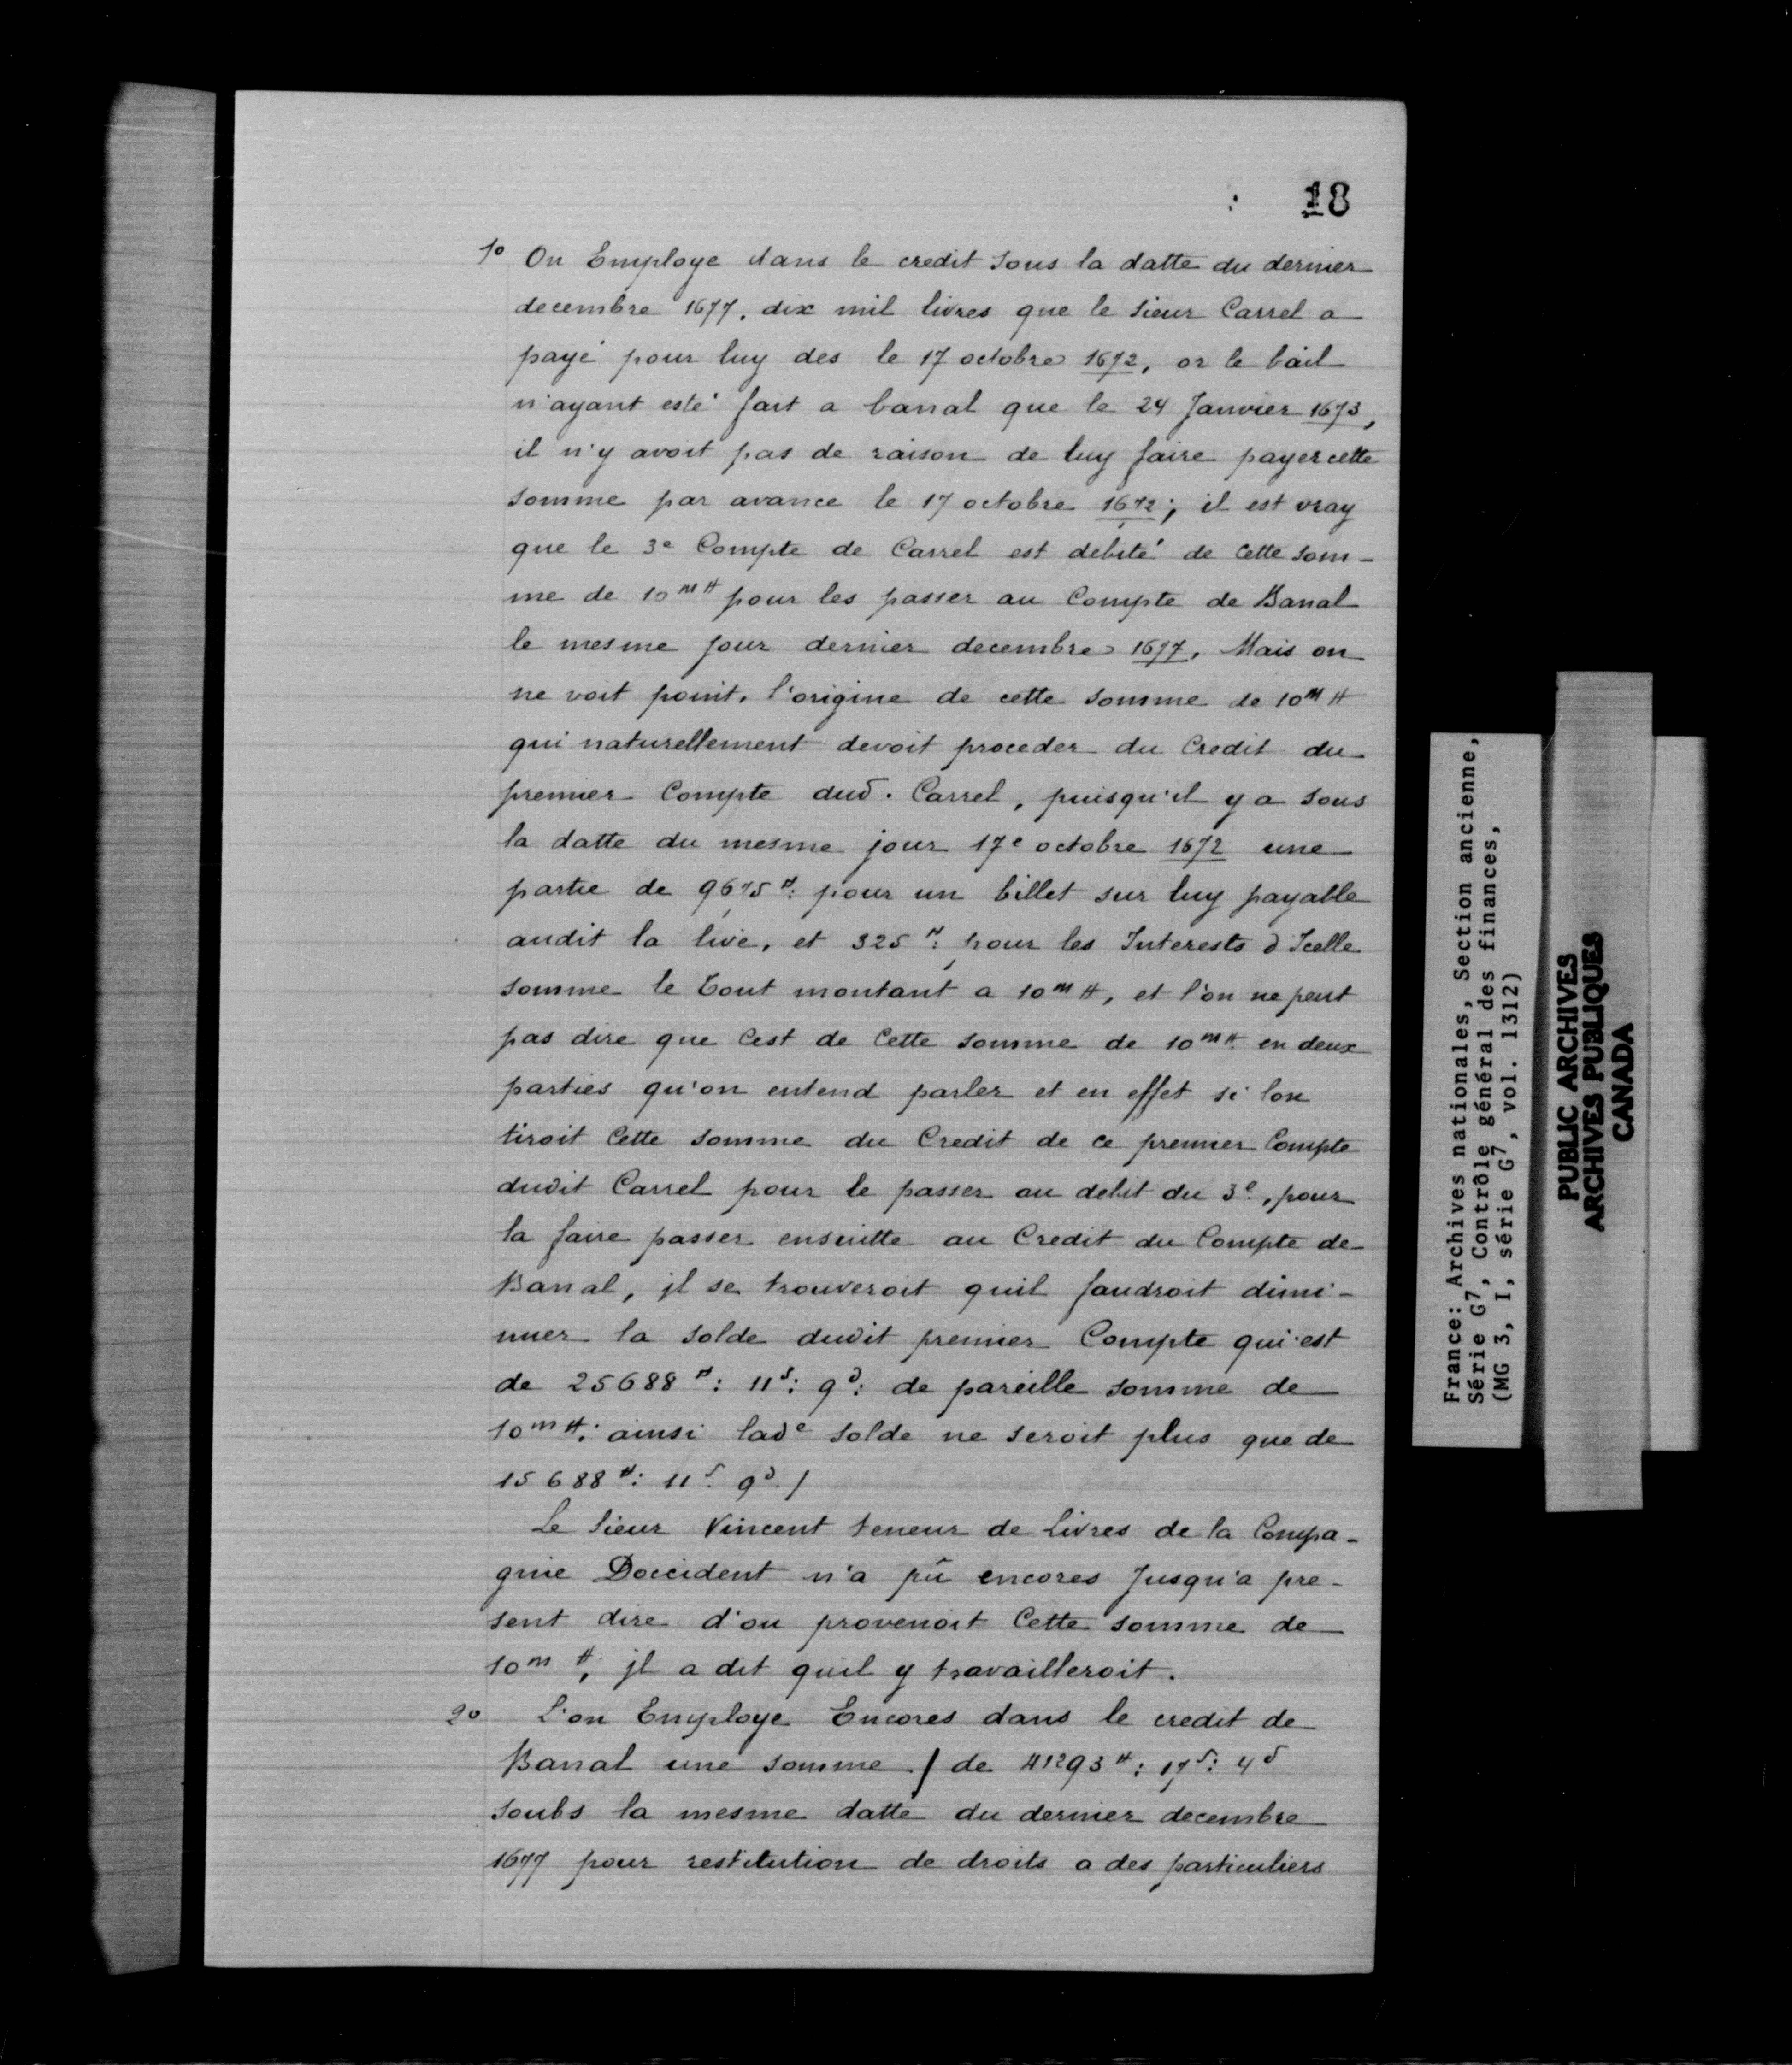 18
1o On Employe dans le credit sous la datte du dernier
decembre 1677, dix mil livres que le Sieur Carrel a
payé pour luy des le 17 octobre 1672, or le bail
n'ayant esté fait a banal que le 24 Janvier 1673,
il n'y avoit pas de raison de luy faire payer cette
somme par avance le 17 octobre 1672; il est vray
que le 3e Compte de Carrel est debité de cette som-
me de 10 m ₶ pour les passer au Compte de Banal
le mesme jour dernier decembre 1677. Mais on
ne voit point, l'origine de cette somme de 10 m ₶
qui naturellement devoit proceder du Credit du
premier Compte dud. Carrel, puisqu'il y a sous
la datte du mesme jour 17e octobre 1672 une
partie de 9675 ₶: pour un billet sur luy payable
audit la live, et 325 ₶: pour les Interests d'Icelle
somme le Tout montant a 10 m ₶, et l'on ne peut
pas dire que Cest de Cette somme de 10 m ₶ en deux
parties qu'on entend parler et en effet si lon
tiroit Cette somme du Credit de ce premier Compte
dudit Carrel pour le passer au debit du 3e, pour
la faire passer ensuitte au Credit du Compte de
Banal, jl se trouveroit quil faudroit dimi-
nuer la solde dudit premier Compte qui est
de 25688 ₶: 11 s: 9 d: de pareille somme de
10 m ₶: ainsi lade solde ne seroit plus que de
15688 ₶: 11 s. 9 d. /
Le Sieur Vincent teneur de Livres de la Compa-
gnie Doccident n'a pû encores Jusqu'a pre-
sent dire d'ou provenoit Cette somme de
10 m ₶, jl a dit quil y travailleroit.
2o L'on Employe Encores dans le credit de
Banal une somme / de 41293 ₶: 17 s: 4 d
soubs la mesme datte du dernier decembre
1677 pour restitution de droits a des particuliers
France: Archives nationales, Section ancienne,
Série G7, Contrôle général des finances,
(MG 3, I, série G7, vol. 1312)
PUBLIC ARCHIVES
ARCHIVES PUBLIQUES
CANADA